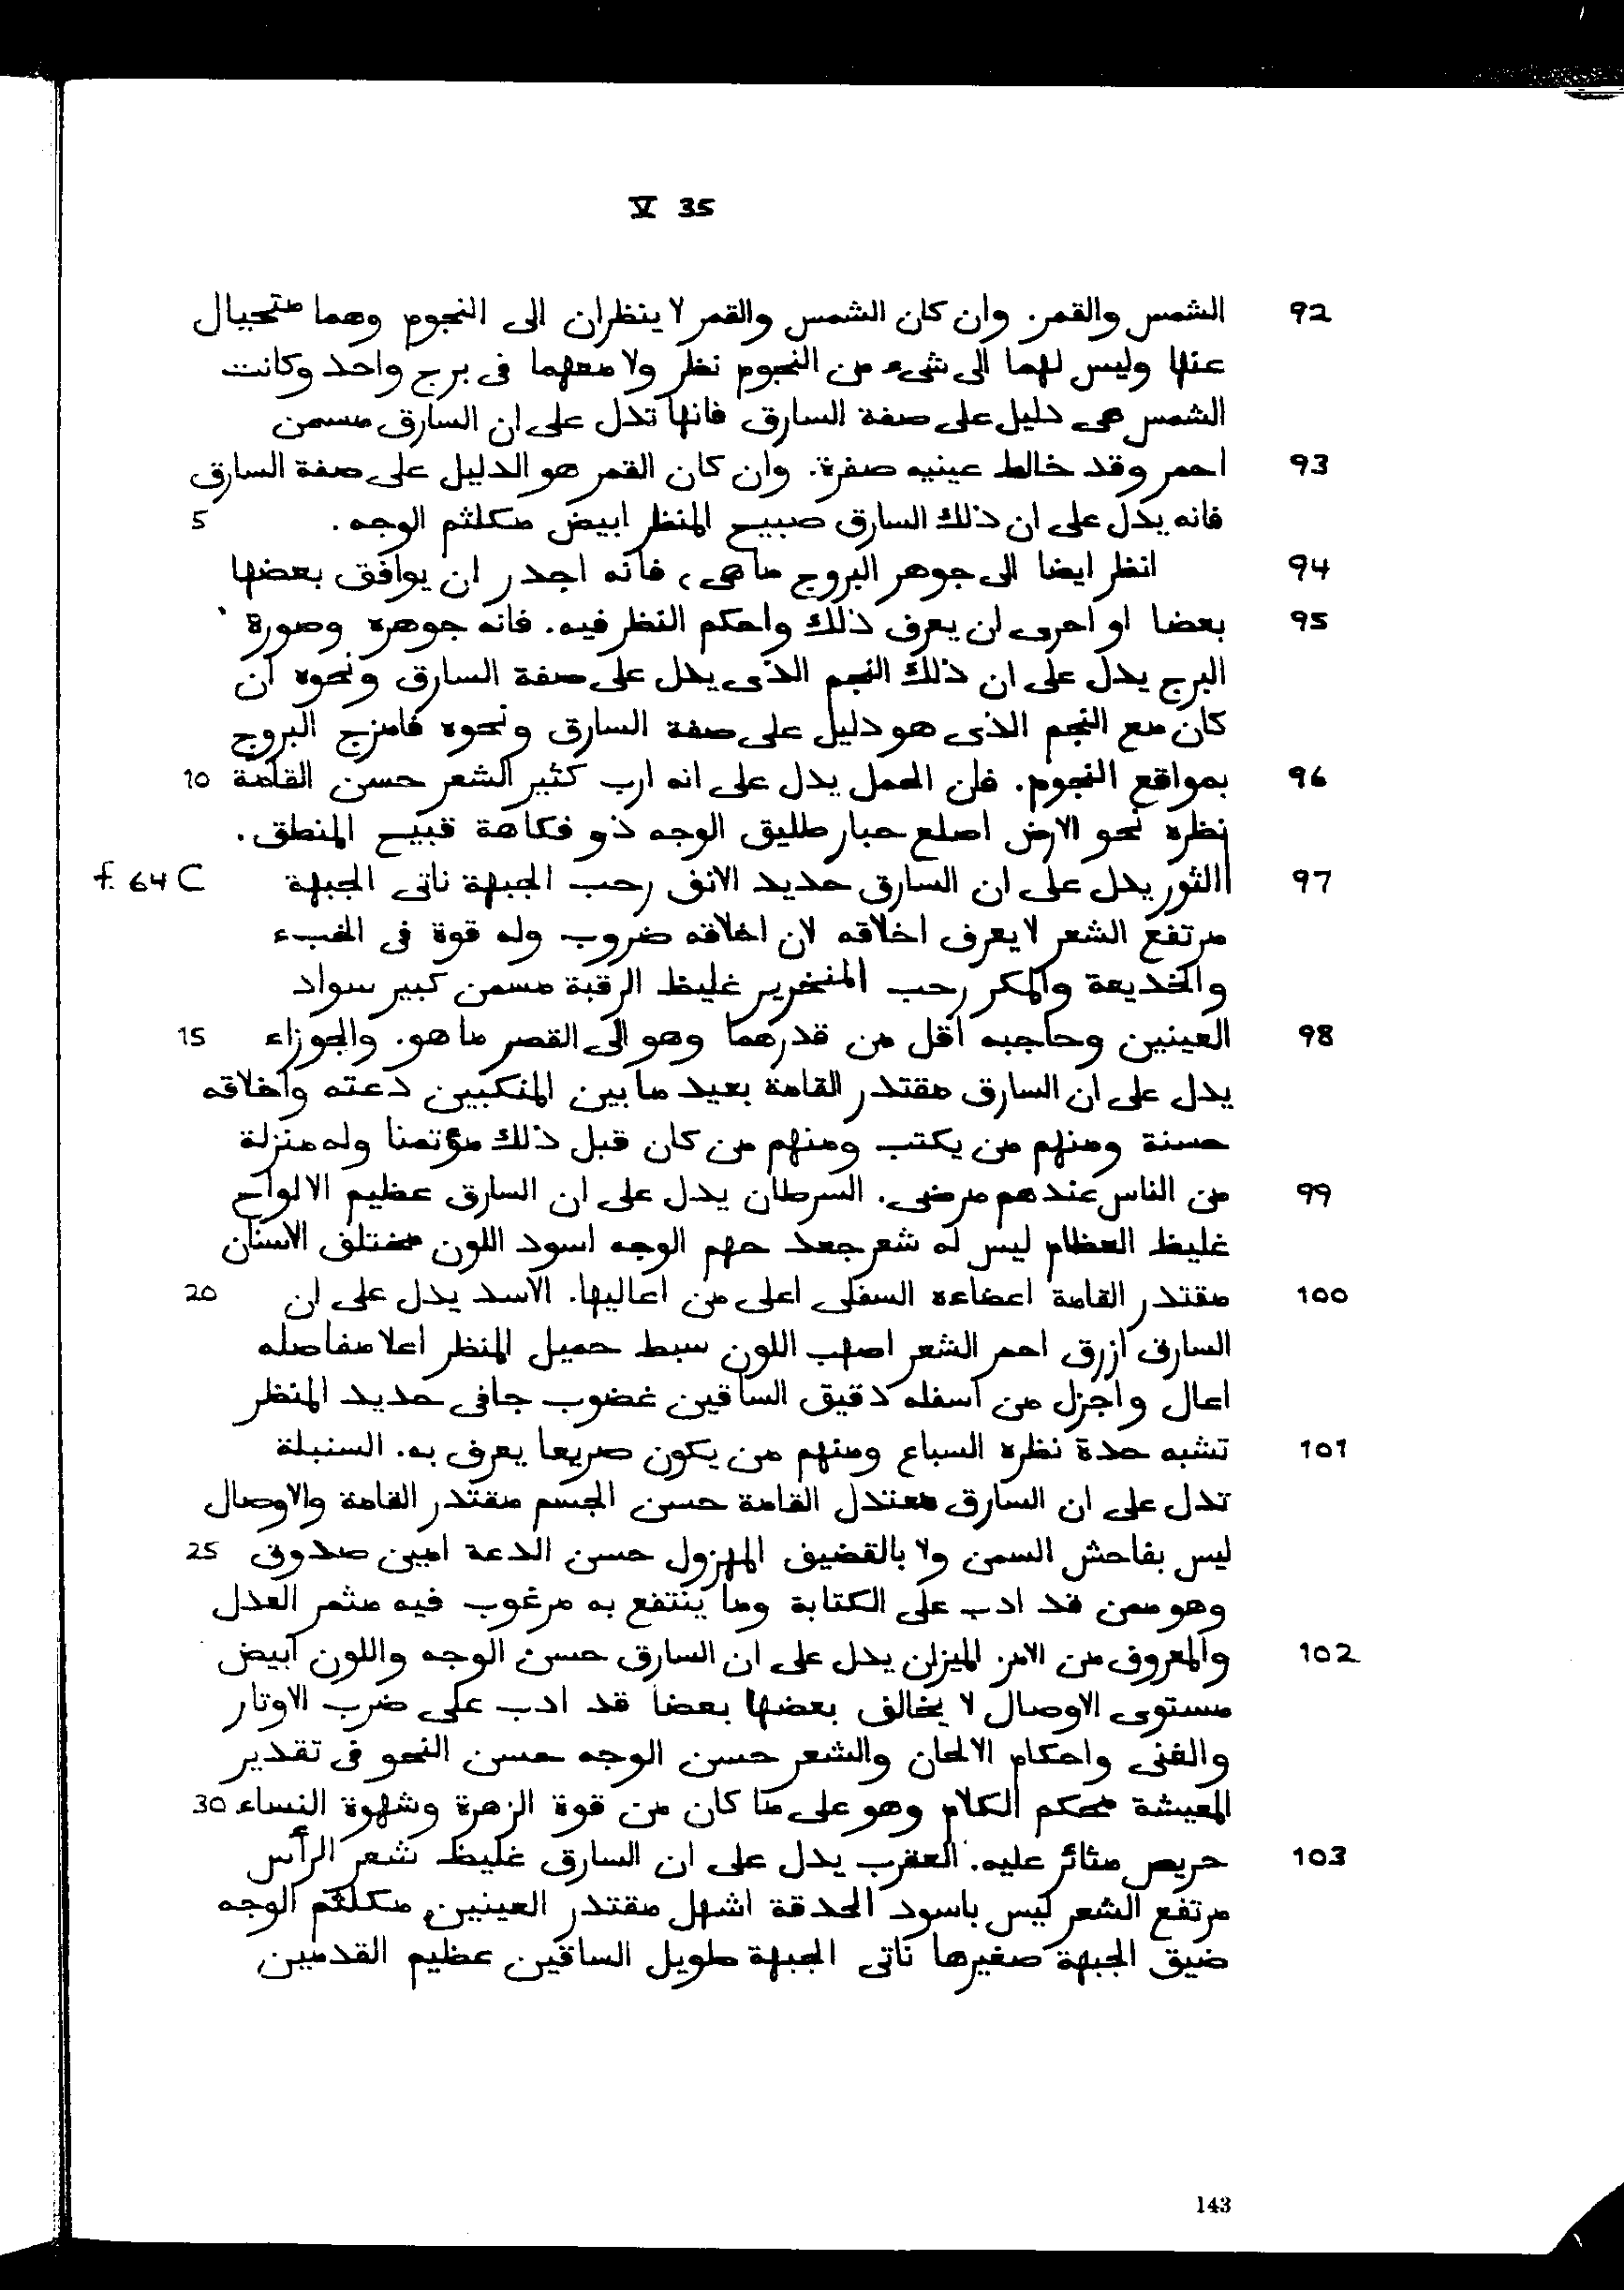 V 35
92 الشمس والقمر. وان كان الشمس والقمر لا ينظران الى النجوم وهما متحيال
عنها وليس لهما الى شىء من النجوم نظر ولا معهما فى برج واحد وكانت
الشمس هى دليل على صفة السارق فانها تدل على ان السارق مسمن
93 احمر وقد خالط عينيه صفرة. وان كان القمر هو الدليل على صفة السارق
فانه يدل على ان ذلك السارق صبيح المنظر ابيض مكلثم الوجه. 5
94 انظر ايضا الى جوهر البروج ما هى، فانه اجدر ان يوافق بعضها
95 بعضا او احرى ان يعرف ذلك واحكم النظر فيه. فانه جوهره وصورة
البرج يدل على ان ذلك النجم الذى يدل على صفة السارق ونحوه ان
كان مع النجم الذى هو دليل على صفة السارق ونحوه فامزج البروج
96 بمواقع النجوم. فان الحمل يدل على انه ارب كثير الشعر حسن القامة 10
نظره نحو الارض اصلع حبار طليق الوجه ذو فكاهة قبيح المنطق.
97 االثور يدل على ان السارق حديد الانف رحب الجبهة ناتى الجبهة f. 64 C
مرتفع الشعر لا يعرف اخلاقه لان اخلاقه ضروب وله قوة فى الخبء
والخديعة والمكر رحب المنخرير غليظ الرقبة مسمن كبير سواد
98 العينين وحاجبه اقل من قدرهما وهو الى القصر ما هو. والجوزاء 15
يدل على ان السارق مقتدر القامة بعيد ما بين المنكبين دعته واخلاقه
حسنة ومنهم من يكتب ومنهم من كان قبل ذلك مؤتمنا وله منزلة
99 من الناس عندهم مرضى. السرطان يدل على ان السارق عظيم الالواح
غليظ العظام ليس له شعر جعد حهم الوجه اسود اللون مختلف الاسنان
100 مقتدر القامة اعضاءه السفلى اعلى من اعاليها. الاسد يدل على ان 20
السارق ازرق احمر الشعر اصهب اللون سبط حميل المنظر اعلا مفاصله
اعال واجزل من اسفله دقيق الساقين غضوب جافى حديد المنظر
101 تشبه حدة نظره السباع ومنهم من يكون صريعا يعرف به. السنبلة
تدل على ان السارق معتدل القامة حسن الجسم مقتدر القامة والاوصال
ليس بفاحش السمن ولا بالقضيف المهزول حسن الدعة امين صدوق 25
وهو ممن قد ادب على الكتابة وما ينتفع به مرغوب فيه مثمر العدل
102 والمعروف من الامر. الميزان يدل على ان السارق حسن الوجه واللون ابيض
مستوى الاوصال لا يخالف بعضها بعضا قد ادب على ضرب الاوتار
والغنى واحكام الالحان والشعر حسن الوجه حسن النحو فى تقدير
المعيشة محكم الكلام وهو على ما كان من قوة الزهرة وشهوة النساء 30
103 حريص مثائر عليه. العقرب يدل على ان السارق غليظ شعر الرأس
مرتفع الشعر ليس باسود الحدقة اشهل مقتدر العينين مكلثم الوجه
ضيق الجبهة صغيرها ناتى الجبهة طويل الساقين عظيم القدمين
143